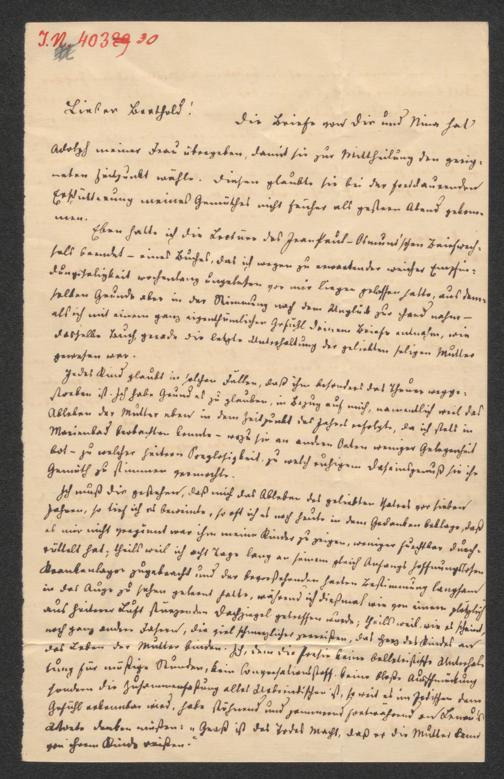 I.N. 40330
Lieber Berthold!
Die Briefe von Dir und Nina hat
Adolph meiner Frau übergeben, damit sie zur Mittheilung den geeig-
neten Zeitpunkt wähle. Diesen glaubte sie bei der fortdauernden
Erschütterung meines Gemüthes nicht früher als gestern Abend gekom-
men.
Eben hatte ich die Lecture des Jean Paul-Osmund'schen Briefwech-
sels beendet – eines Buches, das ich wegen zu erwartender weicher Empfin-
dungsseligkeit wochenlang ungelesen vor mir liegen gelassen hatte, aus dem-
selben Grunde aber in der Stimmung nach dem Unglück zur Hand nahm –
als ich mit einem ganz eigenthümlichen Gefühl Deinem Briefe entnahm, wie
dasselbe Buch gerade die letzte Unterhaltung der geliebten seligen Mutter
gewesen war.
Jedes Kind glaubt in solchen Fällen, daß ihm besonders das Theure wegge-
storben ist. Ich habe Grund es zu glauben, in Bezug auf mich, namentlich weil das
Ableben der Mutter eben in dem Zeitpunkt des Jahres erfolgte, da ich stets in
Marienbad beobachten konnte – wozu sie an andern Orten weniger Gelegenheit
bot – zu welcher heitern Sorglosigkeit, zu welch ruhigem Daseinsgenuß sie ihr
Gemüth zu stimmen vermochte.
Ich muß Dir gestehen, daß mich das Ableben des geliebten Vaters vor sieben
Jahren, so tief ich es beweinte, so oft ich es noch heute in dem Gedanken beklage, daß
es mir nicht vergönnt war ihm meine Kinder zu zeigen, weniger furchtbar durch-
rüttelt hat; theils weil ich acht Tage lang an seinem gleich Anfangs hoffnungslosen
Krankenlager zugebracht und der bevorstehenden harten Bestimmung langsam
in das Auge zu sehen gelernt hatte, während ich dießmal wie von einem plötzlich
aus heiterer Luft stürzenden Dachziegel getroffen wurde; theils weil, wie es scheint,
noch ganz andere Fasern, die viel schmerzlicher zerreißen, das Herz des Kindes an
das Leben der Mutter binden. Ich, dem die Poesie keine belletristische Unterhal-
tung für müßige Stunden, kein Conversationsstoff, keine bloße Ausschmückung
sondern die Zusammenfassung alles Überirdischen ist, so weit es im Irdischen dem
Gefühl erkennbar wird, habe stöhnend und jammernd fortwährend an Lenau's
Worte denken müssen: "Groß ist des Todes Macht, daß er die Mutter kann
von ihrem Kinde reißen."